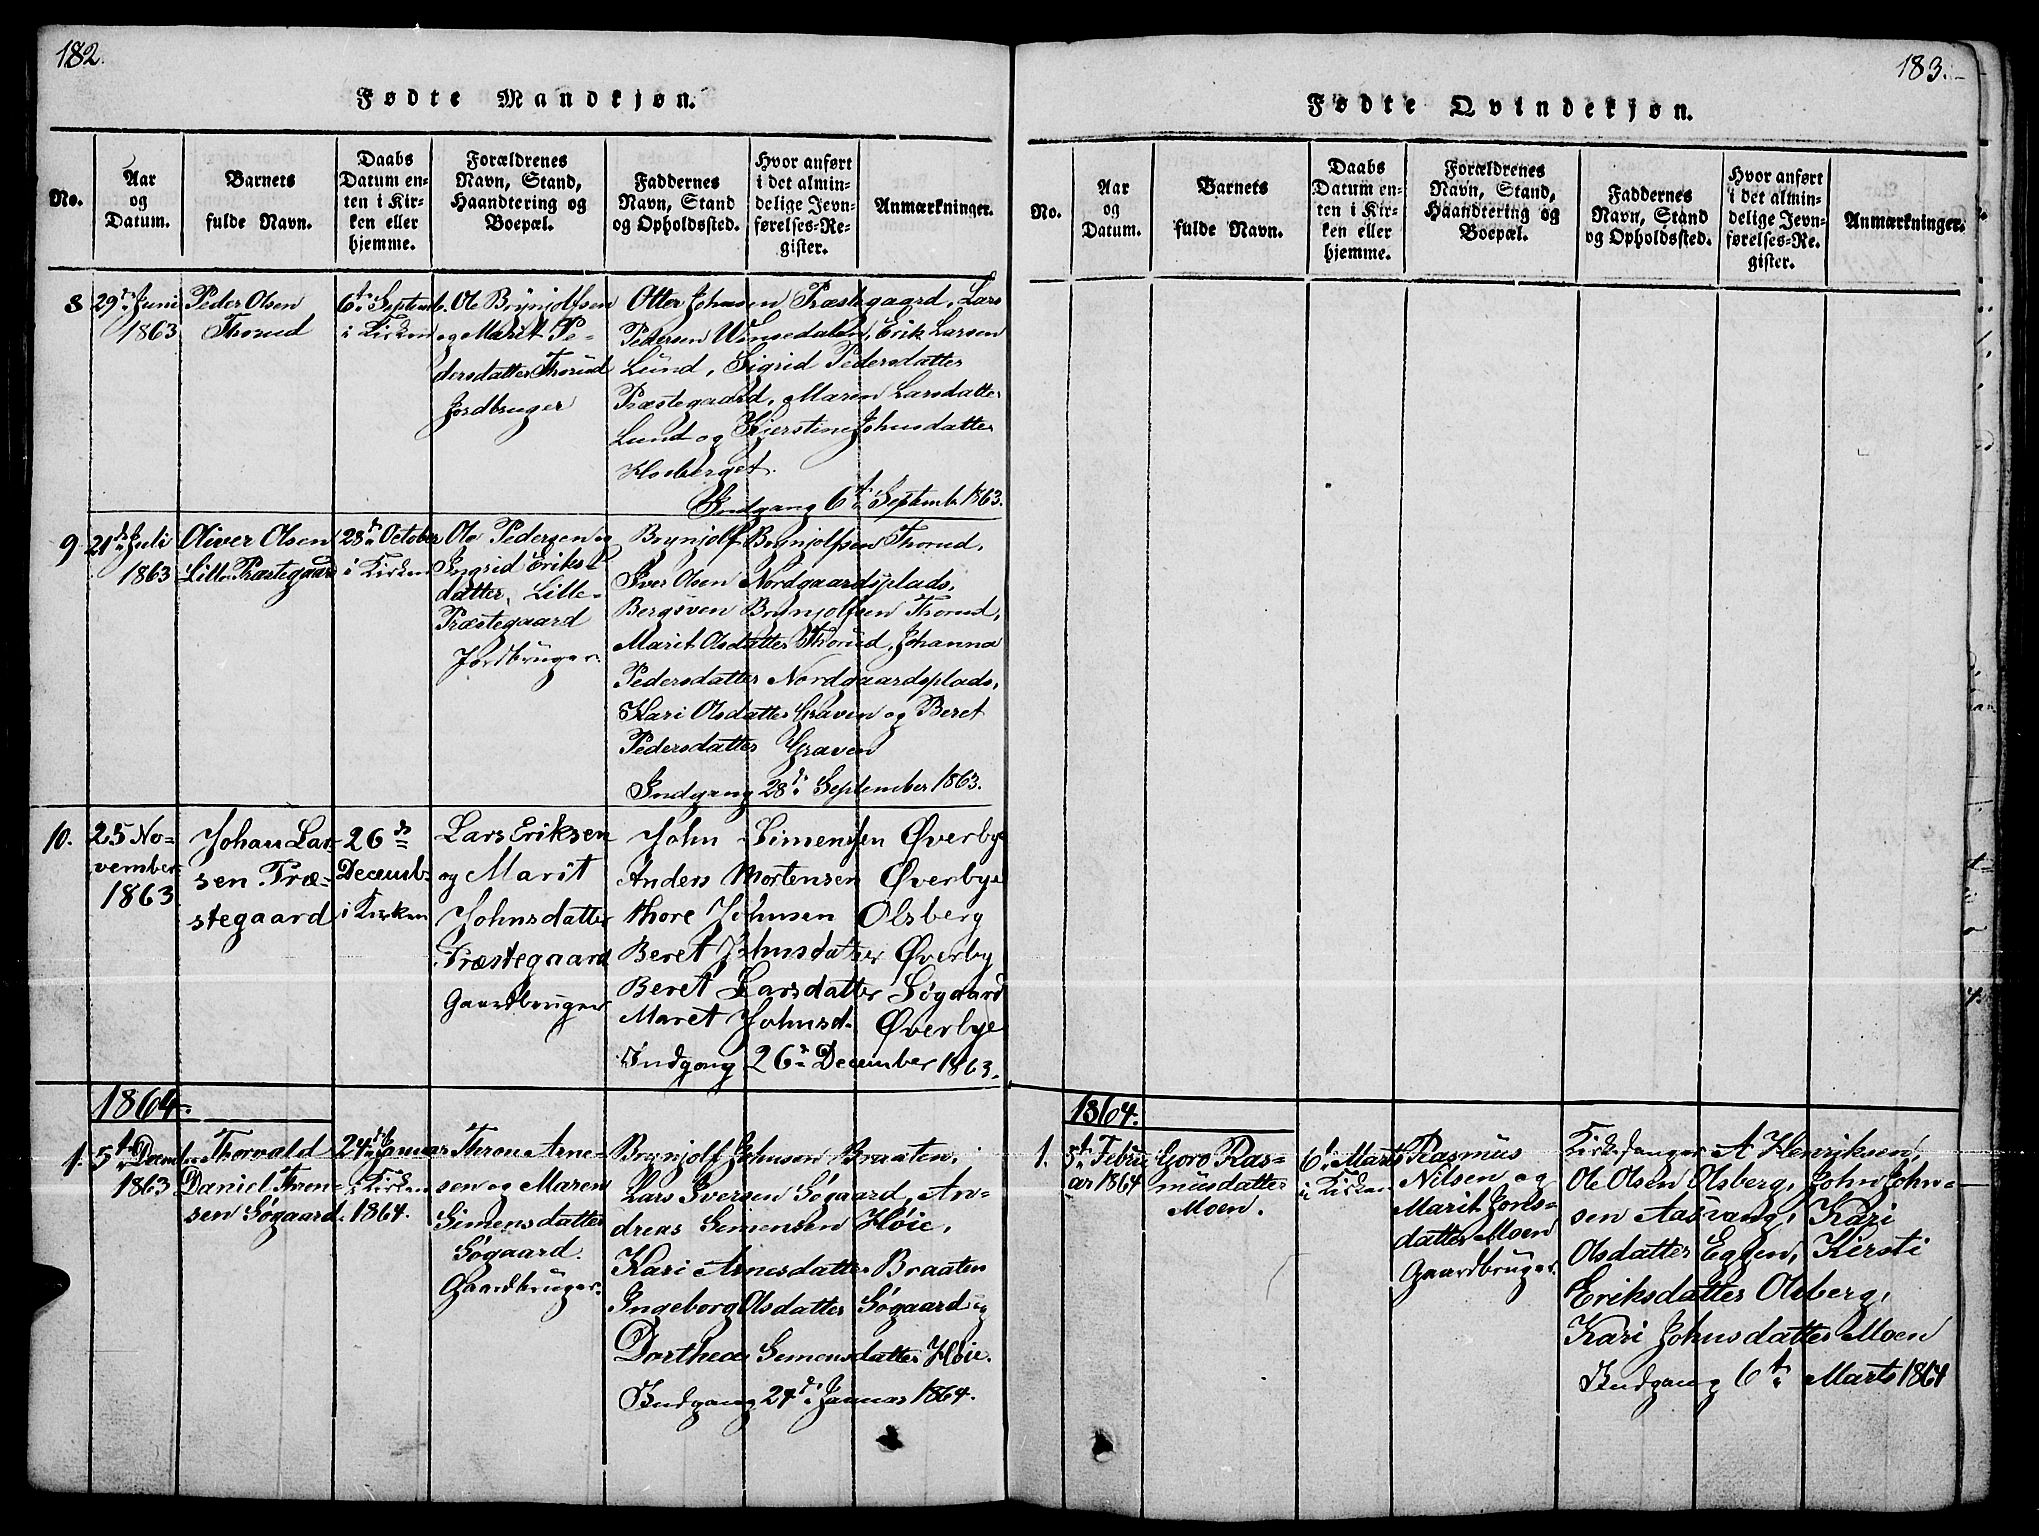 182.
Fødte Mandkjøn.
No.
Aar
og
Datum.
Barnets
fulde Navn.
Daabs
Datum en-
ten i Kir-
ken eller
hjemme.
Forældrenes
Navn, Stand,
Haandtering og
Boepæl.
Faddernes
Navn, Stand
og Opholdssted.
Hvor anført
i det almin-
delige Jevn-
førelses-Re-
gister.
Anmærkninger.
8
29de Juni
1863
Peder Olsen
Thorud
6te Septemb.
i Kirken
Ole Brynjolfsen
og Marit Pe-
dersdatter Thorud
Jordbruger
Otter Johnsen Præstegaard, Lars
Pedersen Winsedalen, Erik Larsen
Lund, Sigrid Pedersdatter
Præstegaard, Maren Larsdatter
Lund og Kjerstine Johnsdatter
Indgang 6te Septemb. 1863.
9
21de Juli
1863
Oliver Olsen
Lille Præstegaard
28de October
i Kirken
Ole Pedersen og
Ingrid Eriks-
datter, Lille-
Præstegaard
Jordbruger.
Brynjolf Brynjolfsen Thorud,
Iver Olsen Nordgaardsplads,
Bergsven Brynjolfsen Thorud,
Marit Olsdatter Thorud, Johanna
Pedersdatter Nordgaardsplads,
Kari Olsdatter Graven og Beret
Pedersdatter Graven
Indgang 28de September 1863.
10.
25 No-
vember
1863
Johan Lar-
sen Præ-
stegaard
26de
Decemb.
i Kirken
Lars Eriksen
og Marit
Johnsdatter
Præstegaard
Gaardbruger
John Simensen Øverbye
Anders Mortensen Øverbye
Thore Johnsen Olsberg
Beret Johnsdatter Øverby
Beret Larsdatter Søgaard
Maret Johnsd. Øverbye
Indgang 26de December 1863.
1864.
1.
5te Decemb.
1863
Thorvald
Daniel Thron-
sen Søgaard.
24de Januar
i Kirken
1864.
Thron Arne-
sen og Maren
Simensdatter
Søgaard.
Gaardbruger.
Brynjolf Johnsen Braaten,
Lars Iversen Søgaard, An-
dreas Simensen Høie,
Kari Arnesdatter Braaten
Ingeborg Olsdatter Søgaard og
Dorthea Simensdatter Høie.
Indgang 24de Januar 1864.
183.
Fødte Qvindekjøn.
No.
Aar
og
Datum.
Barnets
fulde Navn.
Daabs
Datum en-
ten i Kir-
ken eller
hjemme.
Forældrenes
Navn, Stand,
Haandtering og
Boepæl.
Faddernes
Navn, Stand
og Opholdssted.
Hvor anført
i det almin-
delige Jevn-
førelses-Re-
gister.
Anmærkninger.
1864.
1.
5te Febru
ar 1864
Goro Ras-
musdatter
Moen.
6te Marts
i Kirken
Rasmus
Nilsen og
Marit Jons-
datter Moen
Gaardbruger.
Kirkesanger A Henriksen,
Ole Olsen Olsberg, John John-
sen Aasvang, Kari
Olsdatter Eggen, Kirsti
Eriksdatter Olsberg,
Kari Johnsdatter Moen
Indgang 6te Marts 1864